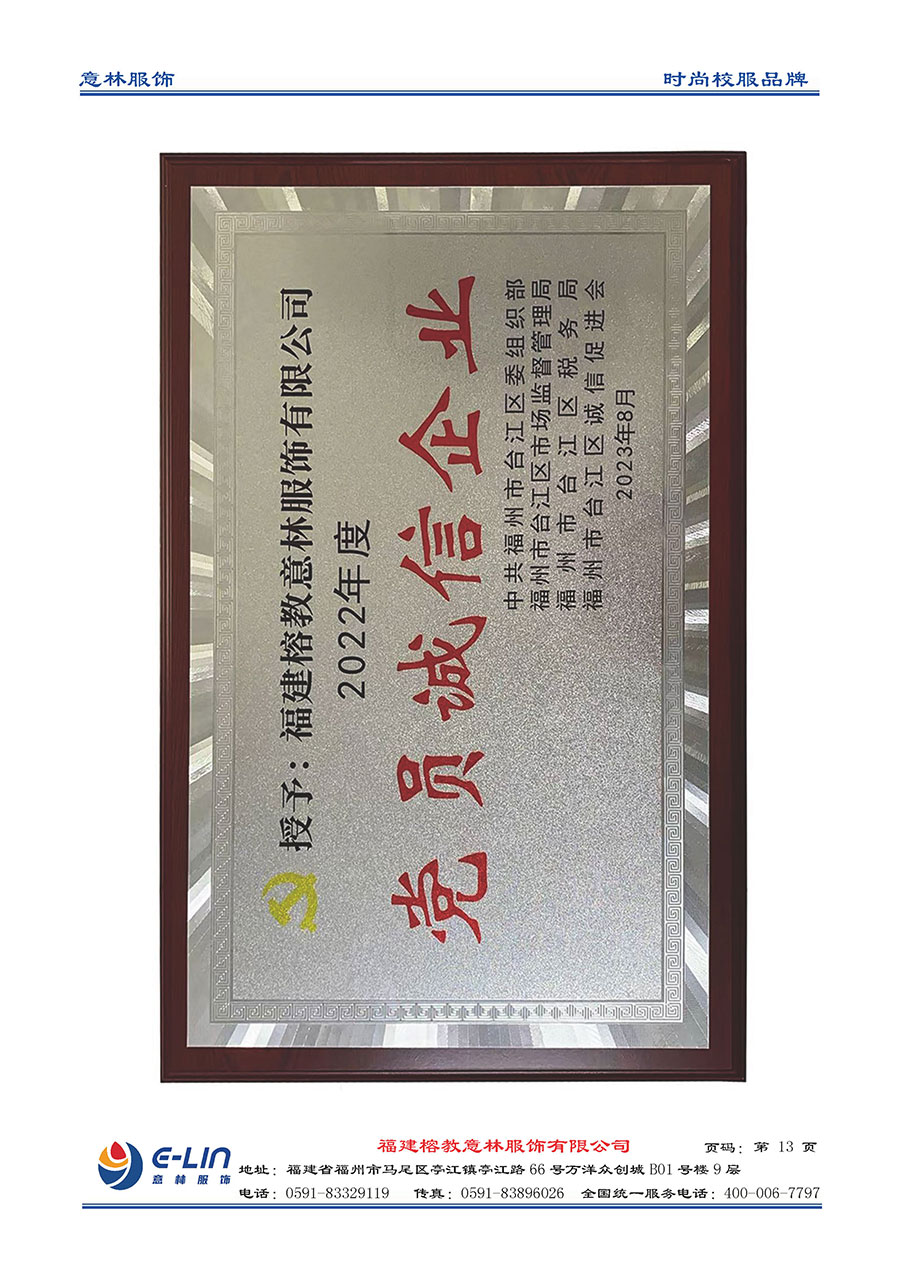 意林服饰
时尚校服品牌
授予：福建榕教意林服饰有限公司
2022年度
党员诚信企业
中共福州市台江区委组织部
福州市台江区市场监督管理局
福州市台江区税务局
福州市台江区诚信促进会
2023年8月
E-LIN
意林服饰
福建榕教意林服饰有限公司
页码：第 13 页
地址：福建省福州市马尾区亭江镇亭江路66号万洋众创城B01号楼9层
电话：0591-83329119 传真：0591-83896026 全国统一服务电话：400-006-7797